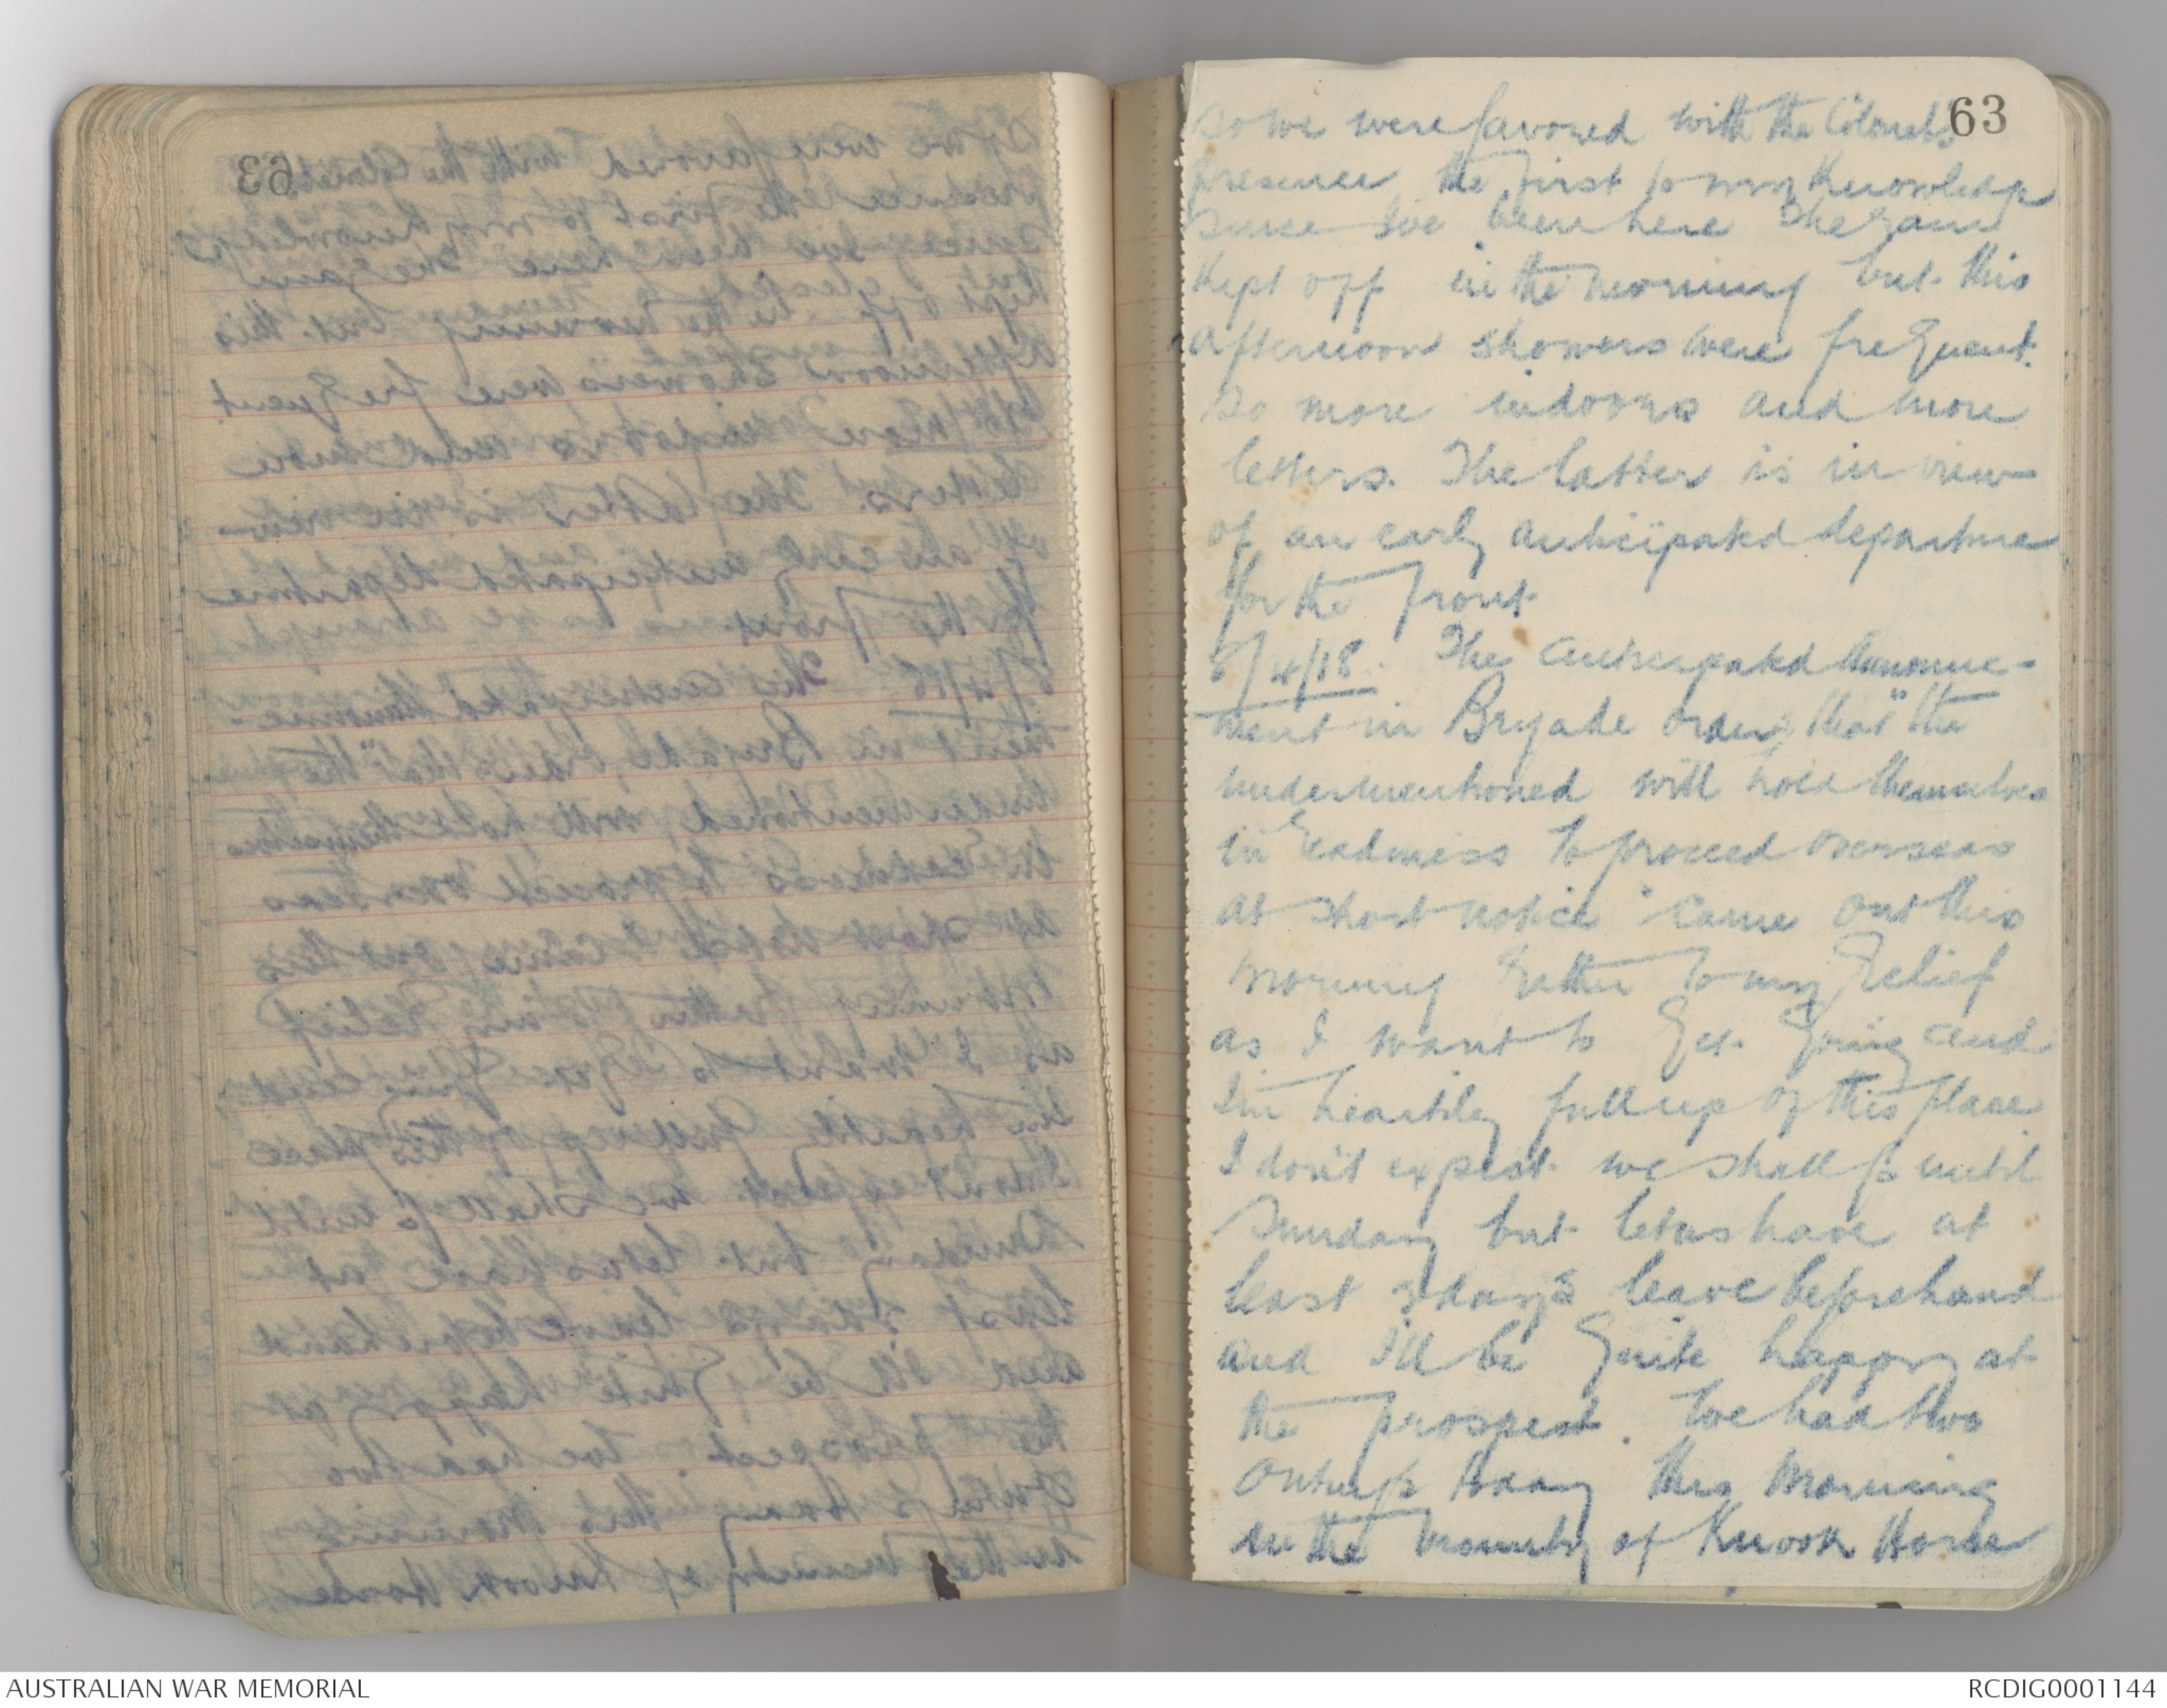 63
so we were favored with the Colonel's
presence the first to my knowledge
since I've been here The rain
kept off in the morning but this
afternoon showers were frequent.
So more indoors and more
letters. The latter is in view
of an early anticipated departure
for the front.
8/4/18. The anticipated announce-
ment in Brigade orders that "the
undermentioned will hold themselves
in readiness to proceed overseas
at short notice" came out this
morning rather to my relief
as I want to get going and
I'm heartily full up of this place.
I don't expect we shall go until
Sunday but let us have at
least 3 days leave beforehand
and I'll be quite happy at
the prospect. We had two
outings today this morning
in the vicinity of Knook Horse
AUSTRALIAN WAR MEMORIAL
RCDIG0001144